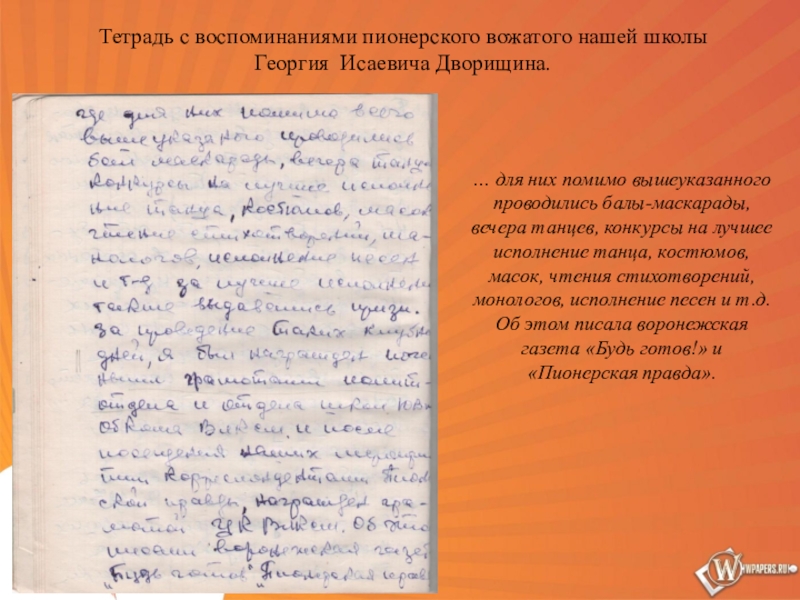 Тетрадь с воспоминаниями пионерского вожатого нашей школы
Георгия Исаевича Дворищина.
где для них помимо всего
вышеуказаного проводились
бал маскарады, вечера танце
конкурсы на лучшее исполне
ние танца, костюмов, масок
чтение стихотворений, мо-
нологов, исполнение песен
и т-д за лучшее исполнени
также выдавались призы.
За проведение таких клубн
дней, я был награжден поче
ными грамотами полит-
отдела и отдела школ ЮВ
Обкома ВЛКСМ. и после
посещения наших меропри
тий корреспондентами Пион
ской правды, награжден гра-
мотой ЦК ВЛКСМ. Об это
писали воронежская газет
"Будь готов" "Пионерская правд
… для них помимо вышеуказанного
проводились балы-маскарады,
вечера танцев, конкурсы на лучшее
исполнение танца, костюмов,
масок, чтения стихотворений,
монологов, исполнение песен и т.д.
Об этом писала воронежская
газета «Будь готов!» и
«Пионерская правда».
W WPAPERS.RU